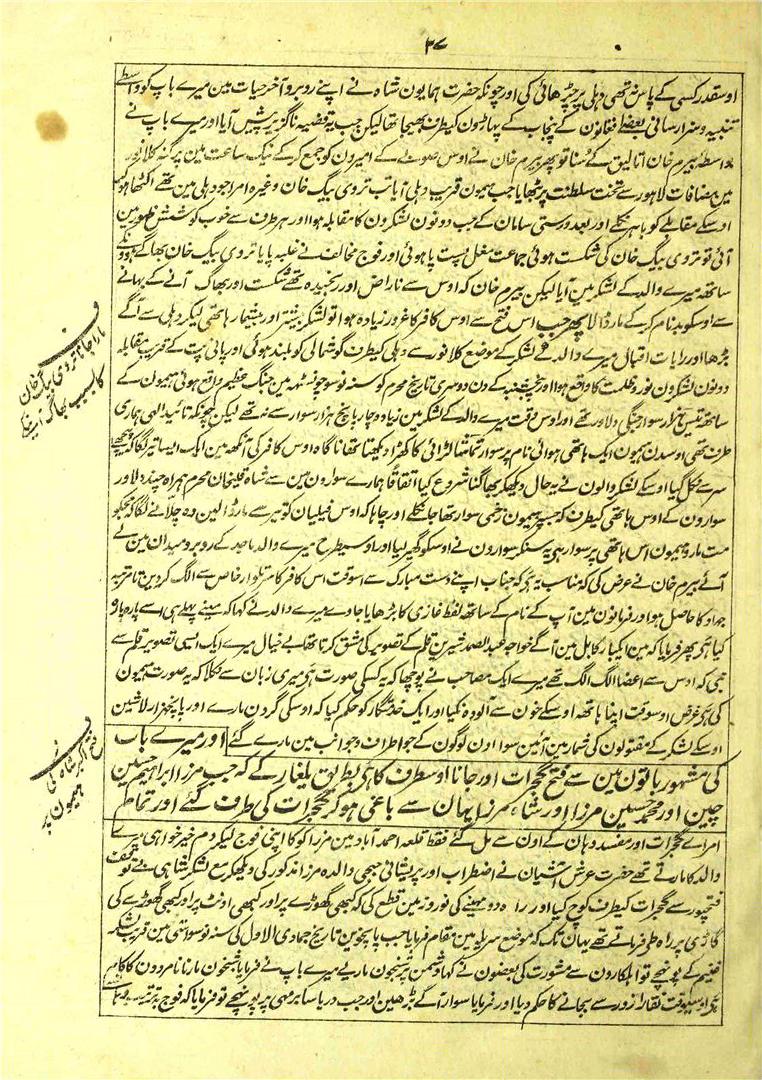 ۳۷
اوسقدر کسی کے پاس نتھی دہلی پر چڑھائی کی اور چونکہ حضرت ہمایون شاہ نے اپنے روبرو آخر حیات مین میرے باپ کو واسطے
تنبیہ و سزا رسانی بعضے افغانون کے پنجاب کے پہاڑون کیطرف بھیجا تھا لیکن جب یہ قضیہ ناگزیر پیش آیا اور میرے باپ نے
بواسطہ بیرم خان اتالیق کے سُنا تو پھر بیرم خان نے اوس صوبے کے امیرون کو جمع کر کے نیک ساعت مین پرگنہ کلانور
مین مضافات لاہور سے تخت سلطنت پر بٹھایا جب ہیمون قریب دہلی آیا تب تردی بیگ خان وغیرہ امرا جو دہلی مین تھے اکٹھا ہوکر
اوسکے مقابلے کو باہر نکلے اور بعد درستی سامان کے جب دونون لشکرون کا مقابلہ ہوا اور ہر طرف سے خوب کوشش ظہور مین
آئی تو تردی بیگ خان کی شکست ہوئی جماعت مغل پست پا ہوئی اور فوج مخالف نے غلبہ پایا تردی بیگ خان بھاگے ہوونکے
ساتھ میرے والد کے لشکر مین آیا لیکن بیرم خان کہ اوس سے ناراض اور رنجیدہ تھے شکست اور بھاگ آنے کے بہانے
سے اوسکو بدنام کر کے مار ڈالا پھر جب اس فتح سے اوس کافر کا غرور زیادہ ہوا تو لشکر بیشتر اور بیشمار ہاتھی لیکر دہلی سے آگے
بڑھا اور رایات اقبال میرے والد کے لشکر کے موضع کلانور سے دہلی کیطرف گوشمالی کو بلند ہوئی اور پانی پت کے قریب مقابلہ
دونون لشکرون نور و ظلمت کا واقع ہوا اور پنجشنبہ کے دن دوسری تاریخ محرم کو سنہ نو سو چونسٹھ مین جنگ عظیم واقع ہوئی ہیمون کے
ساتھ تیس ہزار سوار جنگی دلاور تھے اور اوس وقت میرے والد کے لشکر مین زیادہ چار پانچ ہزار سوار سے نہ تھے لیکن چونکہ تائید الٰہی ہماری
طرف تھی اوسدن ہیمون ایک ہاتھی ہوائی نام پر سوار تماشا لڑائی کا کھڑا دیکھتا تھا ناگاہ اوس کافر کی آنکھ مین ایک ایسا تیر لگا کہ پیچھے
سر سے نکل گیا اوسکے لشکر والون نے یہ حال دیکھکر بھاگنا شروع کیا اتفاقًا ہمارے سوارون مین سے شاہ قلیخان محرم ہمراہ چند دلاور
سوارون کے اوس ہاتھی کیطرف کہ جسپر ہیمون زخمی سوار تھا جا نکلے اور چاہا کہ اوس فیلبان کو تیر سے مار ڈالین وہ چلانے لگا کہ مجکو
مت مارو ہیمون اس ہاتھی پر سوار ہے یہ سنکر سوارون نے اوسکو گھیر لیا اور اوسیطرح میرے والد ماجد کے روبرو میدان مین لے
آئے بیرم خان نے عرض کی کہ مناسب یہ ہے کہ جناب اپنے دست مبارک سے اسوقت اس کافر کا سر تلوار خاص سے الگ کر دین تا مرتبہ
جہاد کا حاصل ہو اور فرمانون مین آپ کے نام کے ساتھ لفظ غازی کا بڑھایا جاوے میرے والد نے کہا کہ مینے پہلے ہی اسے پارہ پارہ
کیا ہے پھر فرمایا کہ مین ایکبار کابل مین آگے خواجہ عبد الصمد شیرین قلم کے تصویر کی مشق کرتا تھا بے خیال میرے ایک ایسی تصویر قلم سے
بنی کہ اوس سے اعضا الگ الگ تھے میرے ایک مصاحب نے پوچھا کہ یہ کسکی صورت ہے میری زبان سے نکلا کہ یہ صورت ہیمون
کی ہے غرض اوسوقت اپنا ہاتھ اوسکے خون سے آلودہ نکیا اور ایک خدمتگار کو حکم کیا کہ اوسکی گردن مارے اور پانچہزار لاشین
اوسکے لشکر کے مقتولون کی شمار مین آئین سوا اون لوگون کے جو اطراف و جوانب مین مارے گئے اور میرے باپ
کی مشہور باتون مین سے فتح گجرات اور جانا اوسطرف کا ہے بطریق یلغار کے کہ جب مرزا ابراہیم حسین
اور محمد حسین مرزا اور شاہ مرزا یہان سے باغی ہو کر گجرات کی طرف گئے اور تمام
امرا گجرات اور مفسد وہان کے اون سے مل گئے فقط قلعہ احمدآباد مین مرزا کوکا اپنی فوج لیکر دم خیر خواہی میرے
والد کا مارتے تھے حضرت عرش آشیانی نے اضطراب اور پریشانی جیجی والدہ مرزا مذکور کی دیکھکر مع لشکر شاہی بے توقف
فتحپور سے گجرات کیطرف کوچ کیا اور راہ دو مہینے کی نو روز مین قطع کی کہ کبھی گھوڑے پر اور کبھی اونٹ پر اور کبھی گھوڑے کی
گاڑی پر راہ طے فرماتے تھے یہان تک کہ موضع سرنال مین مقام فرمایا جب پانچوین تاریخ جمادی الاول کی سنہ نو سو اسی مین قریب لشکر
غنیم کے پونہچے تو اہلکارون سے مشورت کی بعضون نے کہا دشمن پر شبخون ماریے میرے باپ نے فرمایا شبخون مارنا نامردون کا کام
ہے اوسیوقت نقارا زور سے بجانے کا حکم دیا اور فرمایا سوار آگے بڑھین اور جب دریا سابرمتی پر پونہچے تو فرمایا کہ فوج بترتیب
ف
مارا جانا تردی بیگ خان
کا بسبب بھاگ آنیکے
ف
فتح اکبر شاہ کی
ہیمون پر